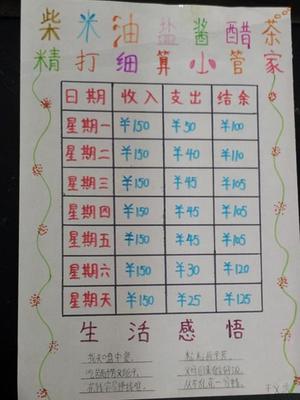 柴米油盐酱醋茶
精打细算小管家
日期 收入 支出 结余
星期一 ¥150 ¥50 ¥100
星期二 ¥150 ¥40 ¥110
星期三 ¥150 ¥45 ¥105
星期四 ¥150 ¥45 ¥105
星期五 ¥150 ¥45 ¥105
星期六 ¥150 ¥30 ¥120
星期天 ¥150 ¥25 ¥125
生活感悟